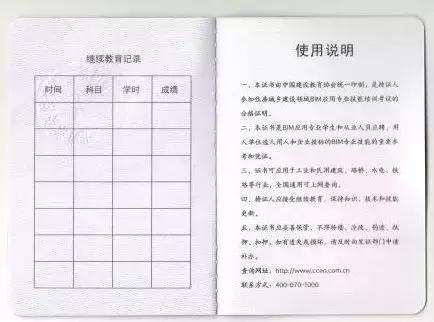 继续教育记录
时间 科目 学时 成绩
使用说明
一、本证书由中国建设教育协会统一印制，是持证人
参加住房城乡建设领域BIM应用专业技能培训考试的
合格证明。
二、本证书是BIM应用专业学生和从业人员应聘、用
人单位选人用人和企业投标的BIM专业技能的重要参
考和凭证。
三、证书可应用于工业和民用建筑、路桥、水电、铁
路等行业，全国通用可上网查询。
四、持证人应接受继续教育，保持知识、技术和技能
更新。
五、本证书应妥善保管，不得转借、涂改、伪造、抵
押、扣押。如有遗失或损坏，请及时向发证部门申请
补办。
查询网址：http://www.ccen.com.cn
联系方式：400-070-1000